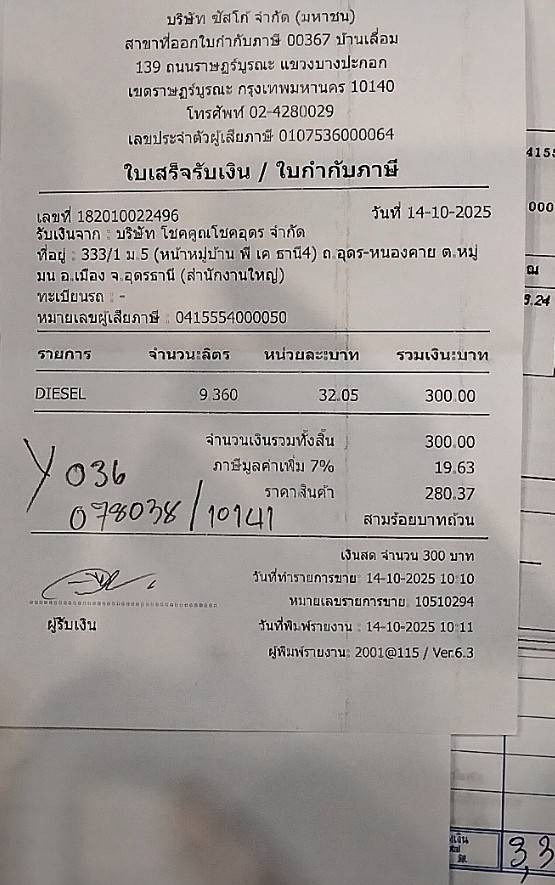 บริษัท ซัสโก้ จำกัด (มหาชน)
สาขาที่ออกใบกำกับภาษี 00367 บ้านเลื่อม
139 ถนนราษฎร์บูรณะ แขวงบางปะกอก
เขตราษฎร์บูรณะ กรุงเทพมหานคร 10140
โทรศัพท์ 02-4280029
เลขประจำตัวผู้เสียภาษี 0107536000064
ใบเสร็จรับเงิน / ใบกำกับภาษี
เลขที่ 182010022496 วันที่ 14-10-2025
รับเงินจาก : บริษัท โชคคูณโชคอุดร จำกัด
ที่อยู่ : 333/1 ม.5 (หน้าหมู่บ้าน พี เค ธานี4) ถ.อุดร-หนองคาย ต.หมู
มน อ.เมือง จ.อุดรธานี (สำนักงานใหญ่)
ทะเบียนรถ : -
หมายเลขผู้เสียภาษี : 0415554000050
รายการ จำนวน:ลิตร หน่วยละ:บาท รวมเงิน:บาท
DIESEL 9.360 32.05 300.00
จำนวนเงินรวมทั้งสิ้น 300.00
ภาษีมูลค่าเพิ่ม 7% 19.63
ราคาสินค้า 280.37
Y 036
078038/10141
สามร้อยบาทถ้วน
เงินสด จำนวน 300 บาท
วันที่ทำรายการขาย: 14-10-2025 10:10
หมายเลขรายการขาย: 10510294
ผู้รับเงิน วันที่พิมพ์รายงาน : 14-10-2025 10:11
ผู้พิมพ์รายงาน: 2001@115 / Ver.6.3
4155
000
9.24
3,3